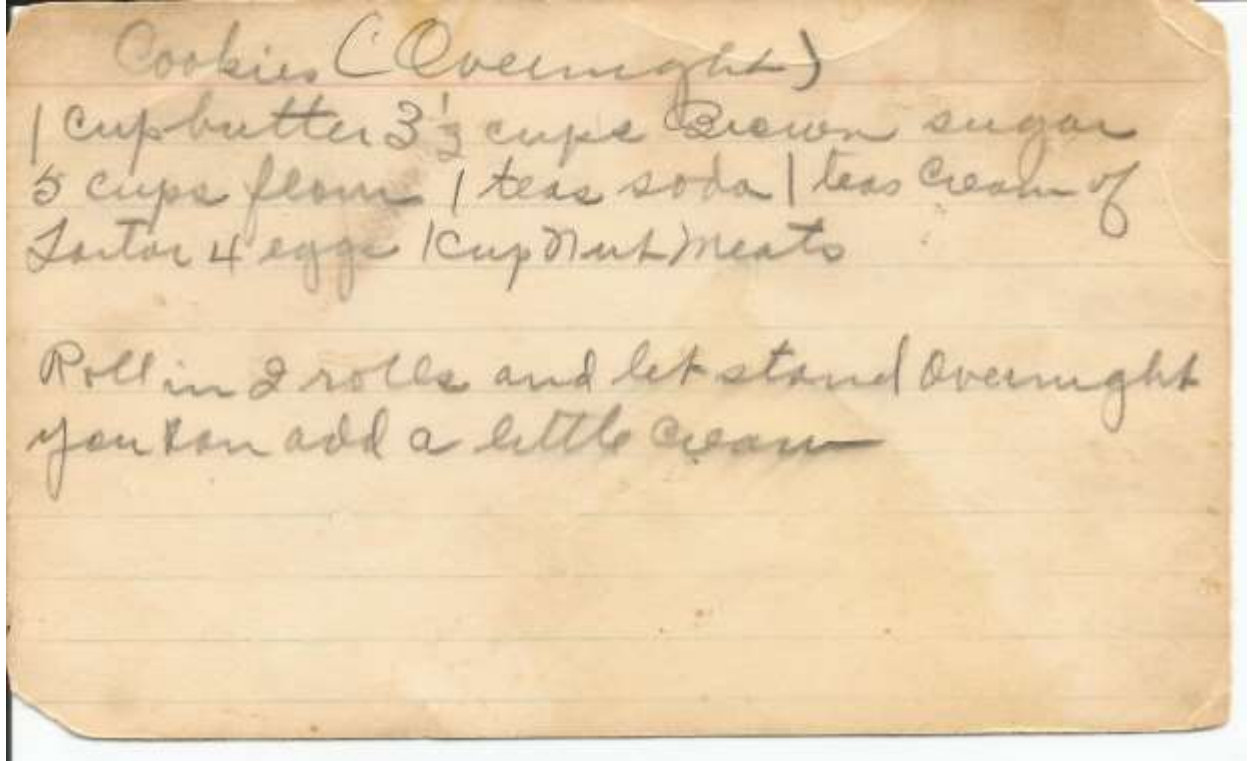 Cookies (Overnight)
1 cup butter 3 1/2 cups Brown sugar
5 cups flour 1 teas soda 1 teas Cream of
Tartar 4 eggs 1 cup Nut Meats
Roll in 2 rolls and let stand Overnight
you can add a little Cream